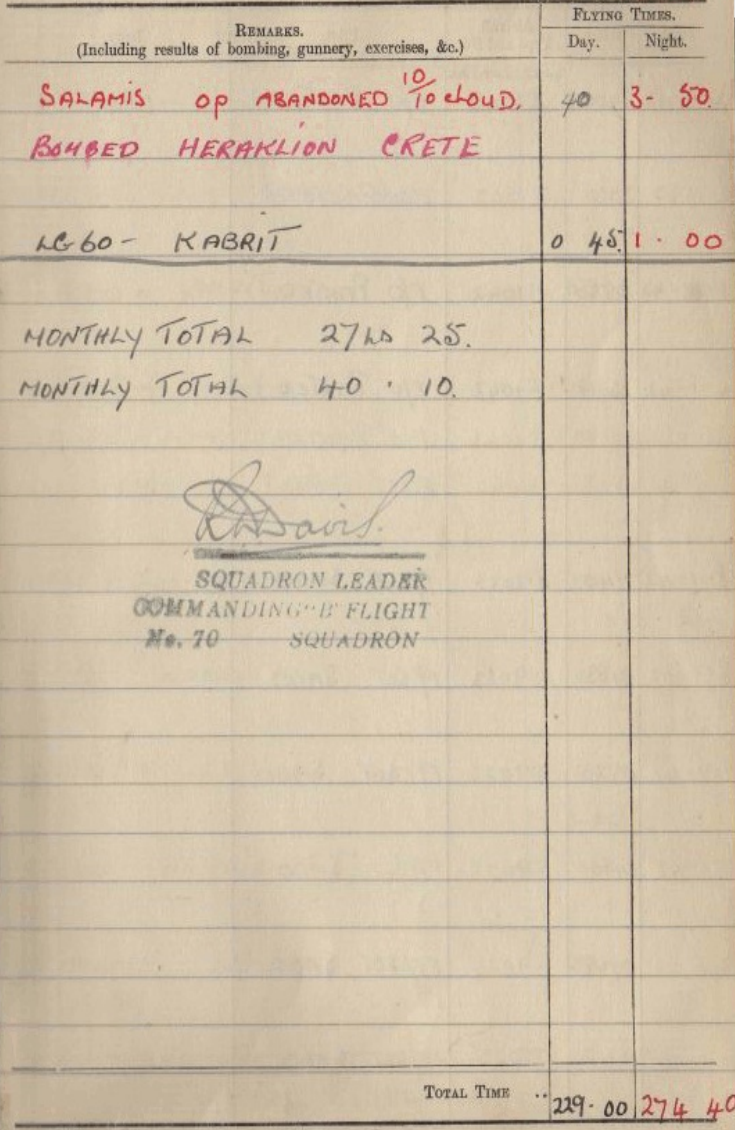 REMARKS.
(Including results of bombing, gunnery, exercises, &c.)
FLYING TIMES.
Day. Night.
SALAMIS OP ABANDONED 10/10 CLOUD. 40 3- 50.
BOMBED HERAKLION CRETE
LG 60 - KABRIT 0 45. 1. 00
MONTHLY TOTAL 27 25.
MONTHLY TOTAL 40 . 10.
Davis.
SQUADRON LEADER
COMMANDING "B" FLIGHT
No. 70 SQUADRON
TOTAL TIME .. 229. 00 274 40